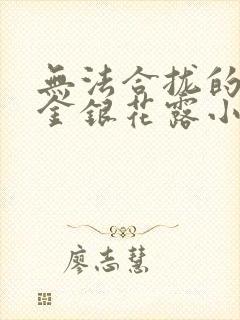 無法合拢的
金銀花露小
廖志慧